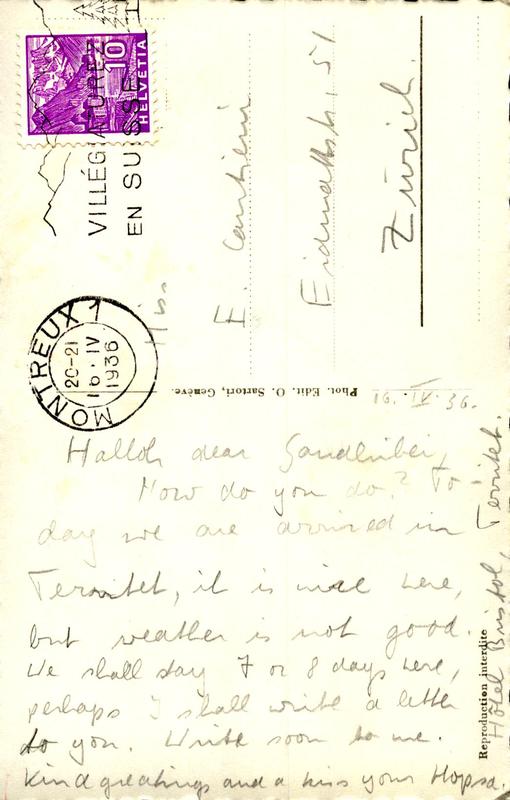 HELVETIA
10
VILLÉGIATUREZ
EN SUISSE
MONTREUX 1
20-21
16. IV
1936
Miss
E.
Eidmattstr. 51
Zürich.
Phot. Edit. O. Sartori, Genève.
Reproduction interdite
Halloh dear
How do you do? To-
day we are arrived in
Territet, it is nice here,
but weather is not good.
We shall stay 7 or 8 days here,
perhaps I shall write a letter
to you. Write soon to me.
Kind greatings and a kiss your Hopsa.
Hôtel Bristol, Territet.